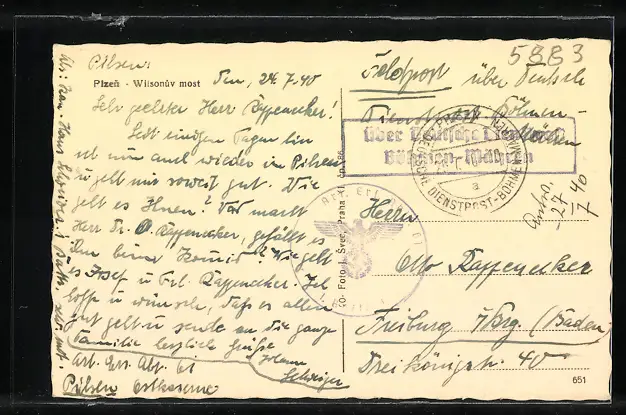 5883
Pilsen:
Plzeň - Wilsonův most
Den, 24.7.40
Sehr geehrter Herr Rappenecker!
Seit einigen Tagen bin
ich nun auch wieder in Pilsen
u. geht mir soweit gut. Wie
geht es Ihnen? Was macht
Herr Dr. O. Rappenecker, gefällt es
ihm beim Komiß? Wie geht
es Josef u. Frl. Rappenecker. Ich
hoffe u. wünsche, daß es allen
gut geht u. sende an die ganze
Familie herzlich Grüße
Hans
Schweizer
Art. Ers. Abt. 61
Pilsen Ostkaserne
Feldpost über Deutsche
Dienstpost Böhmen-
Mähren
über Deutsche Dienstpost
Böhmen-Mähren
DEUTSCHE DIENSTPOST-BÖHMEN-MÄHREN
a
Antw.
27/7 40
Herrn
Otto Rappenecker
Freiburg i/Brg. (Baden)
Dreikönigstr. 40
Foto J. Švec, Praha
651